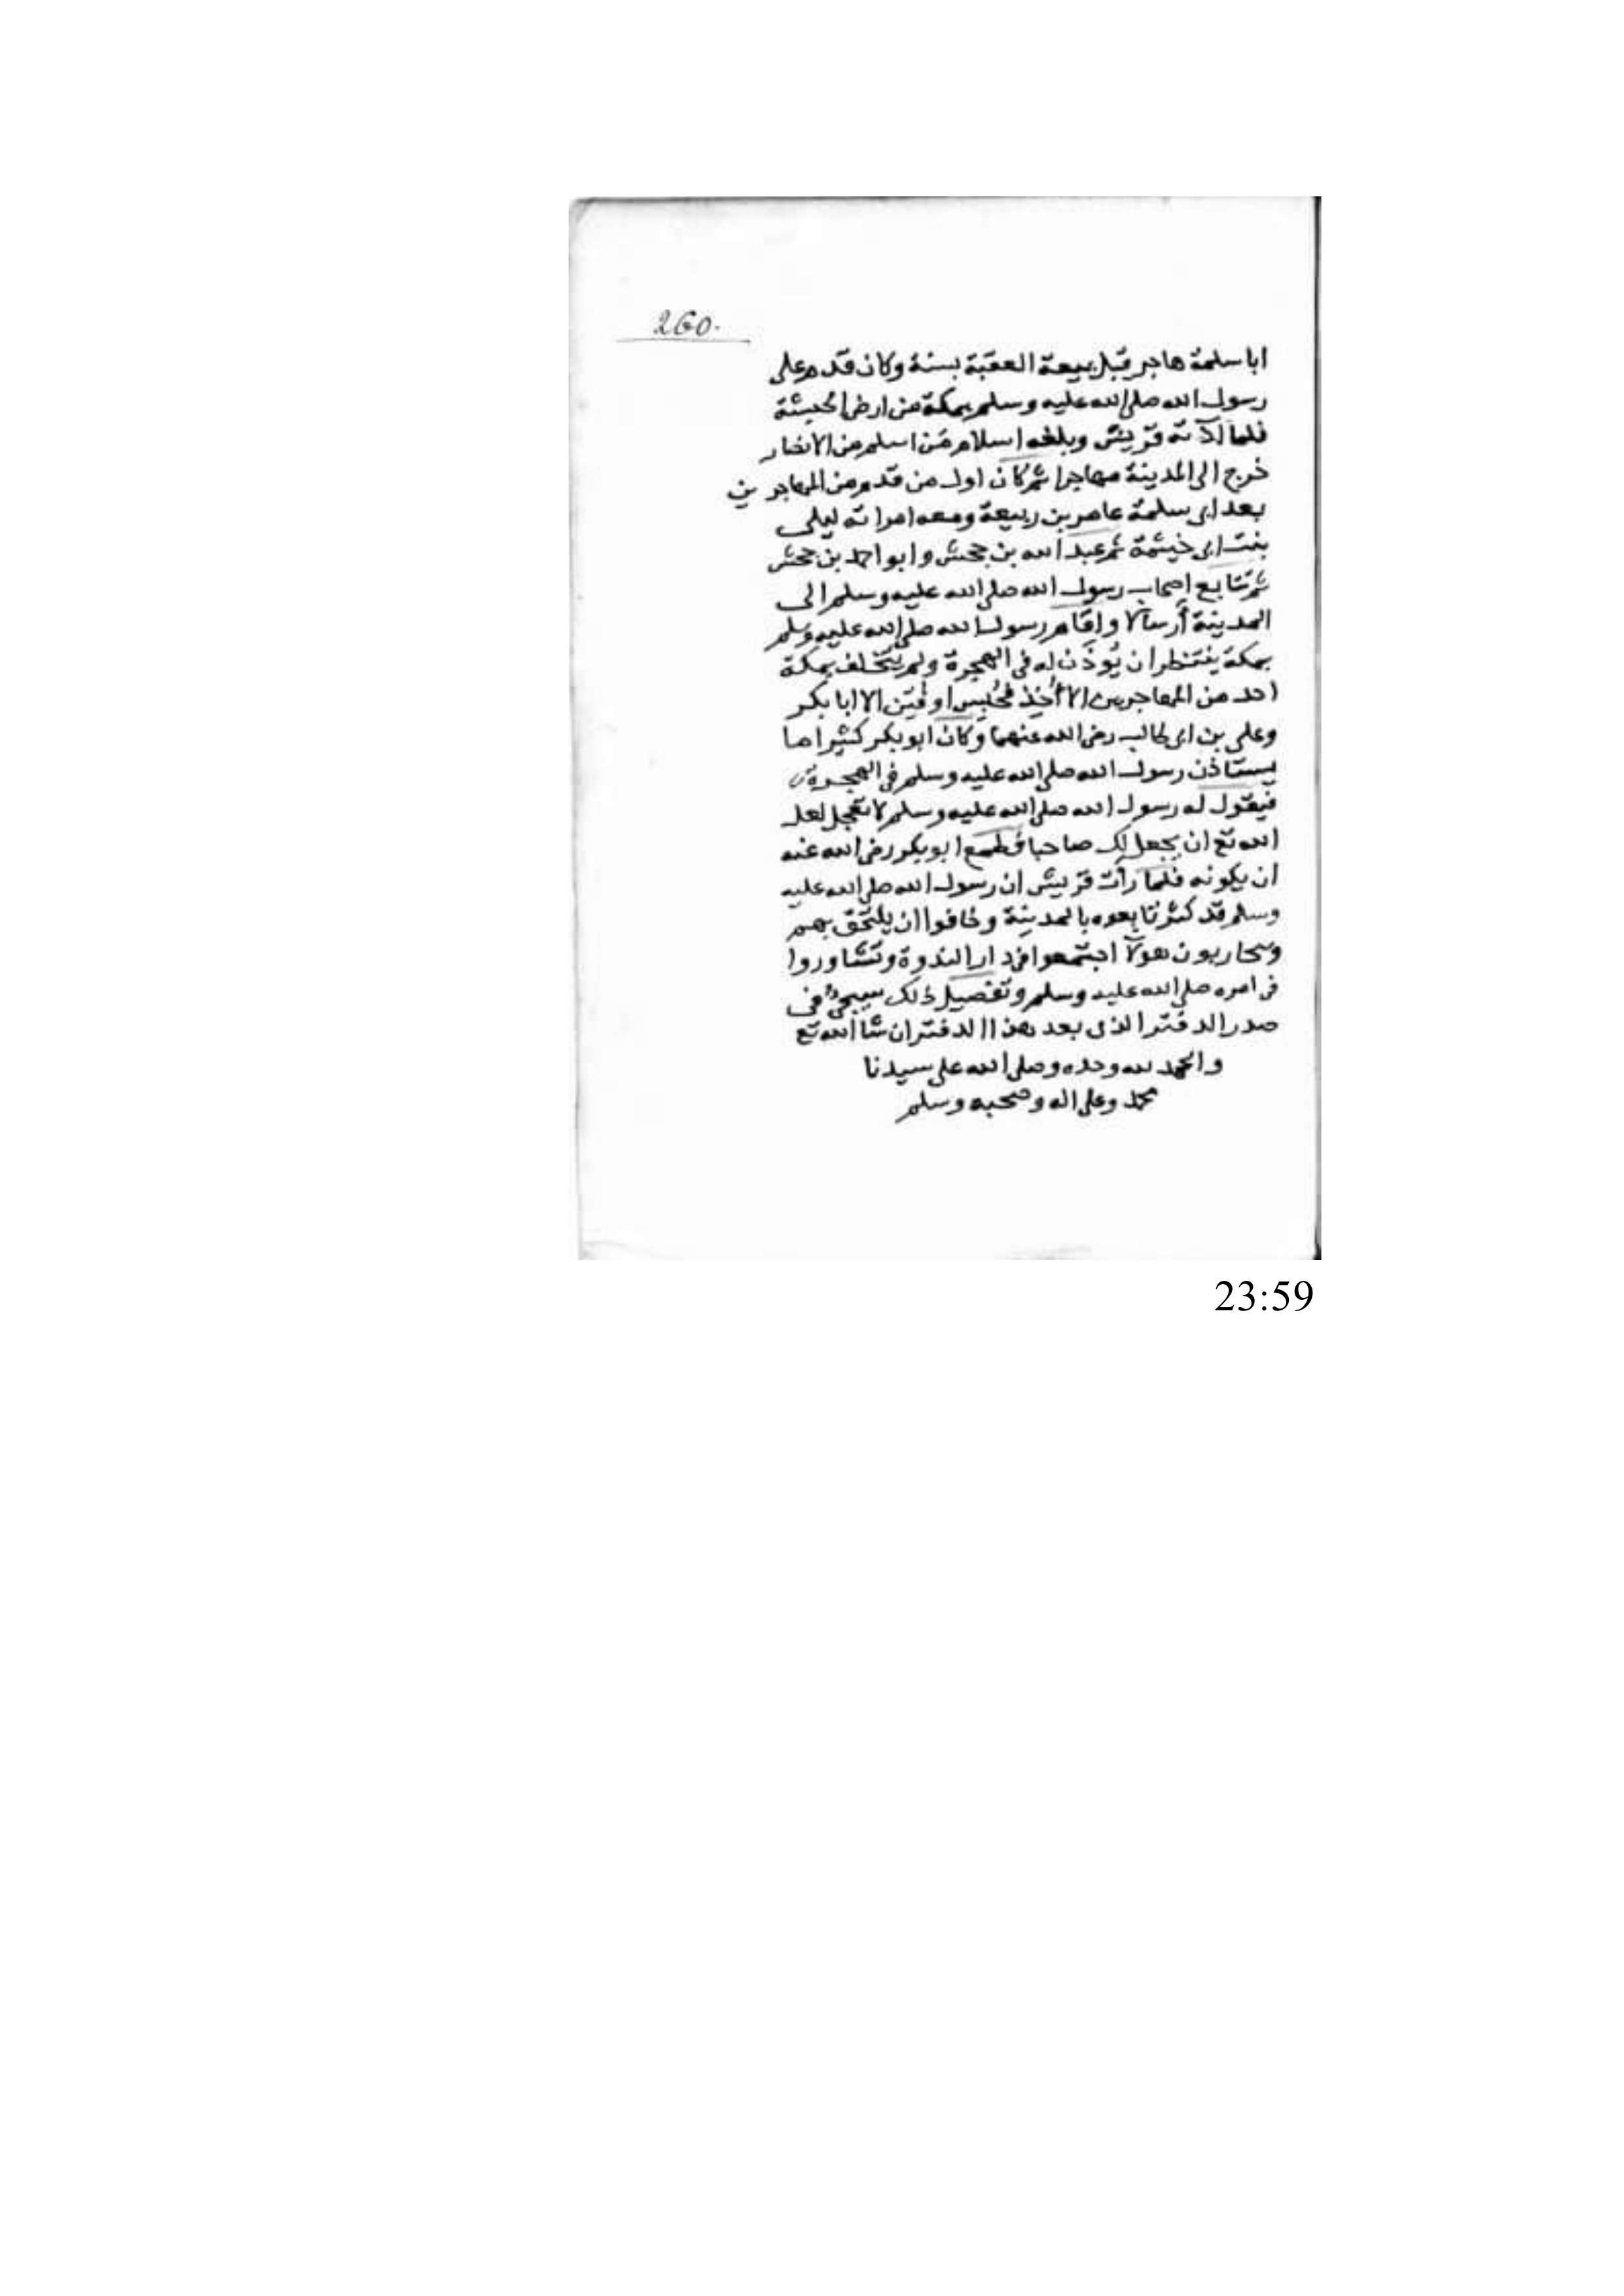 260.
ابا سلمة هاجر قبل بيعة العقبة بسنة وكان قدم على
رسول الله صلى الله عليه وسلم بمكة من ارض الحبشة
فلما اذته قريش وبلغه اسلام مَن اسلم من الانصار
خرج الى المدينة مهاجرا ثم كان اول من قدم من المهاجرين
بعد ابى سلمة عامر بن ربيعة ومعه امراته ليلى
بنت ابى خيثمة ثم عبد الله بن جحش وابو احمد بن جحش
ثم تتابع اصحاب رسول الله صلى الله عليه وسلم الى
المدينة أرسالا واقام رسول الله صلى الله عليه وسلم
بمكة ينتظر ان يُوذَن له فى الهجرة ولم يتخلف بمكة
احد من المهاجرين الا أُخِذ فحُبِس او فُتِن الا ابا بكر
وعلى بن ابى طالب رضى الله عنهما وكان ابو بكر كثيرا ما
يستاذن رسول الله صلى الله عليه وسلم فى الهجرة
فيقول له رسول الله صلى الله عليه وسلم لا تعجل لعل
الله تع ان يجعل لك صاحبا فطمع ابو بكر رضى الله عنه
ان يكونه فلما رأت قريش ان رسول الله صلى الله عليه
وسلم قد كثر تابعوه بالمدينة وخافوا ان يلتحق بهم
ويحاربون هولآ اجتمعوا فى دار الندوة وتشاوروا
فى امره صلى الله عليه وسلم وتفصيل ذلك سيجئ فى
صدر الدفتر الذى بعد هذا الدفتر ان شا الله تع
والحمد لله وحده وصلى الله على سيدنا
محمد وعلى اله وصحبه وسلم
23:59